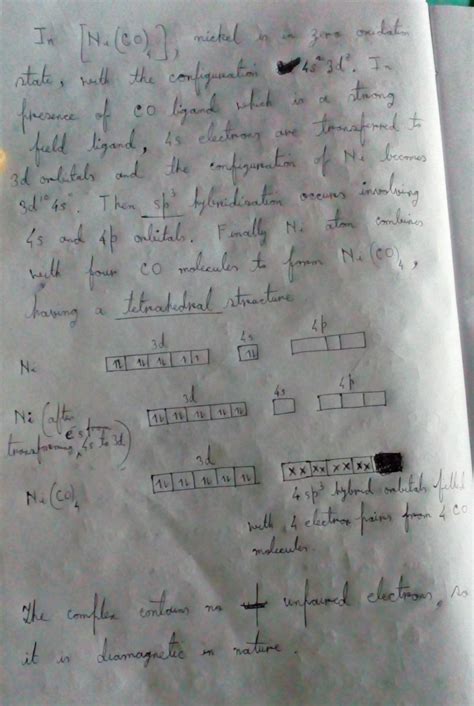 In [Ni(CO)4], nickel is in zero oxidation
state, with the configuration 4s² 3d⁸. In
presence of CO ligand which is a strong
field ligand, 4s electrons are transferred to
3d orbitals and the configuration of Ni becomes
3d¹⁰ 4s⁰. Then sp³ hybridisation occurs involving
4s and 4p orbitals. Finally Ni atom combines
with four CO molecules to form Ni(CO)4,
having a tetrahedral structure.
3d 4s 4p
Ni ⥮ ⥮ ⥮ 1 1 ⥮
3d 4s 4p
Ni (after
transferring e's 4s to 3d) ⥮ ⥮ ⥮ ⥮ ⥮
3d
Ni(CO)4 ⥮ ⥮ ⥮ ⥮ ⥮ xx xx xx xx
4 sp³ hybrid orbitals filled
with 4 electron pairs from 4 CO
molecules.
The complex contains no unpaired electrons, so
it is diamagnetic in nature.